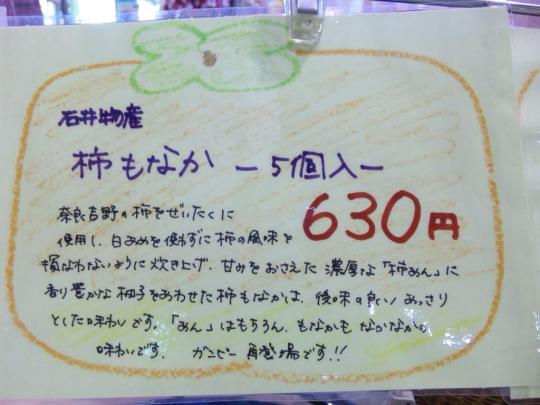 石井物産
柿もなか ー5個入ー
630円
奈良吉野の柿をぜいたくに
使用し、白あめを使わずに柿の風味を
損なわないように炊き上げ、甘みをおさえた濃厚な「柿あん」に
香り豊かな柚子をあわせた柿もなかは、後味の良い あっさり
とした味わいです。「あん」はもちろん、もなかも なかなかの
味わいです。 再登場です!!